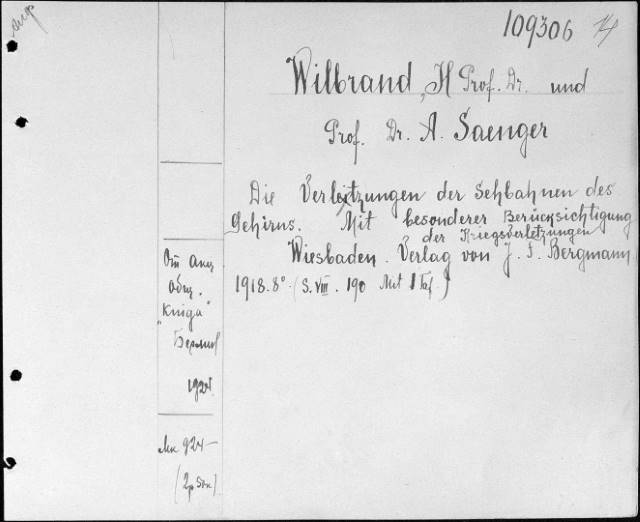 109306
Wilbrand, H Prof. Dr. und
Prof. Dr. A. Saenger
Die Verletzungen der Sehbahnen des
Gehirns. Mit besonderer Berücksichtigung
der Kriegsverletzungen
Wiesbaden. Verlag von J. F. Bergmann
1918. 8° (S. VIII. 190 Mit 1 Taf.)
От акц
общ.
"Книга"
Берлин
1924